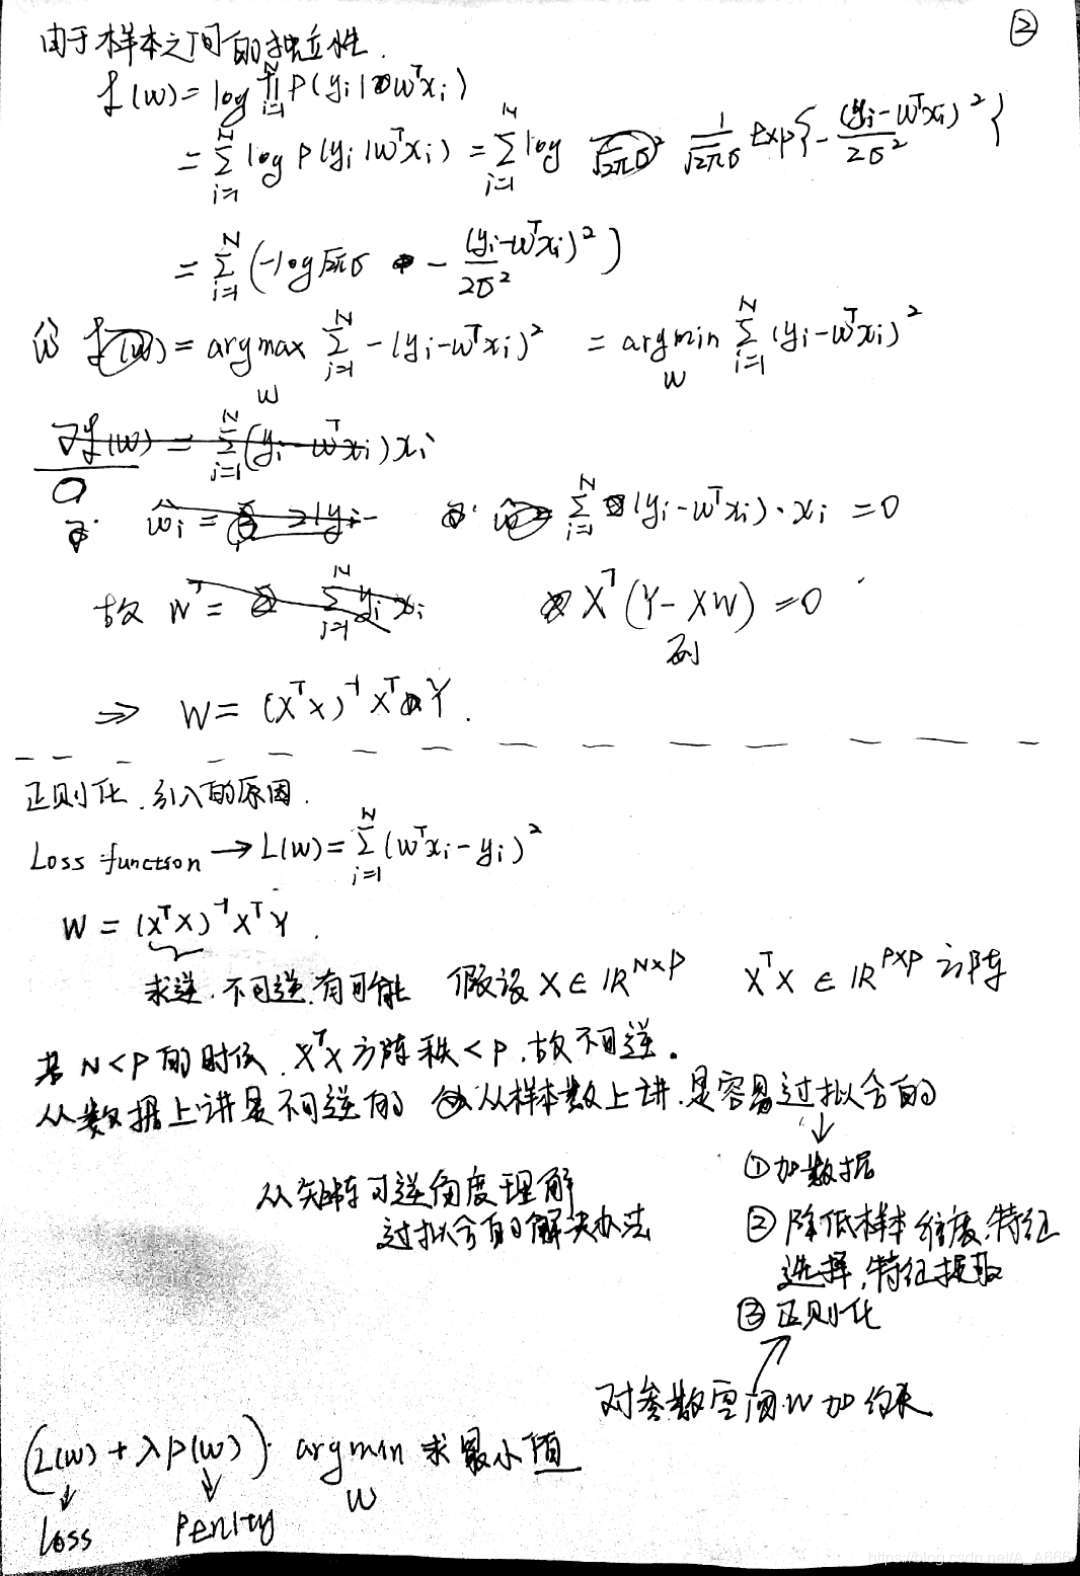 ②
由于样本之间的独立性.
f(w) = log ∏_{i=1}^{N} P(yi|w^T xi)
= ∑_{i=1}^{N} log P(yi|w^T xi) = ∑_{i=1}^{N} log 1/(√2π σ) Exp{-(yi-w^T xi)²/2σ²}
= ∑_{i=1}^{N} (-log√2πσ - (yi-w^T xi)²/2σ²)
ŵ = argmax_w ∑_{i=1}^{N} -(yi-w^T xi)² = argmin_w ∑_{i=1}^{N} (yi-w^T xi)²
∑_{i=1}^{N} (yi-w^T xi)·xi = 0
故 X^T(Y-XW) = 0
列
⇒ W = (X^T X)^{-1} X^T Y.
正则化.引入的原因.
Loss function → L(w) = ∑_{i=1}^{N} (w^T xi - yi)²
W = (X^T X)^{-1} X^T Y.
求逆.不可逆.有可能 假设 X ∈ ℝ^{N×P} X^T X ∈ ℝ^{P×P} 方阵
若 N<P 的时候. X^T X 方阵 秩<P.故不可逆。
从数据上讲是不可逆的 从样本数上讲.是容易过拟合的
↓
①加数据
②降低样本维度.特征
选择,特征提取
③正则化
从矩阵可逆角度理解
过拟合的解决办法
对参数空间w加约束
(L(w) + λP(w)) argmin_w 求最小值
↓ ↓
loss Penlty